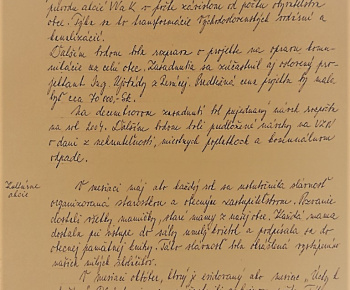 prevodu akcií VVaK v počte závislom od počtu obyvateľstva
obce. Týka sa to transformácie Východoslovenských vodární a
kanalizácií.
Ďalším bodom bola rozprava o projekte na opravu komu-
nikácie na celú obec. Zasadnutia sa zúčastnil aj oslovený pro-
jektant Ing. Predbežná cena projektu by mala
byť cca 70 000,- Sk.
Na decembrovom zasadnutí bol pojednaný návrh rozpočtu
na rok 2004. Ďalšími bodmi boli predložené návrhy na VZN
o dani z nehnuteľností, miestnych poplatkoch a komunálnom
odpade.
Kultúrne
akcie
V mesiaci máj ako každý rok sa uskutočnila slávnosť
organizovaná starostkou a obecným zastupiteľstvom. Pozvanie
dostali všetky mamičky, staré mamy z našej obce. Každá mama
dostala pri vstupe do sály umelý kvietok a podpísala sa do
obecnej pamätnej knihy. Táto slávnosť bola okrášlená vystúpením
našich milých škôlkárov.
V mesiaci október, ktorý je evidovaný ako mesiac "Úcty k